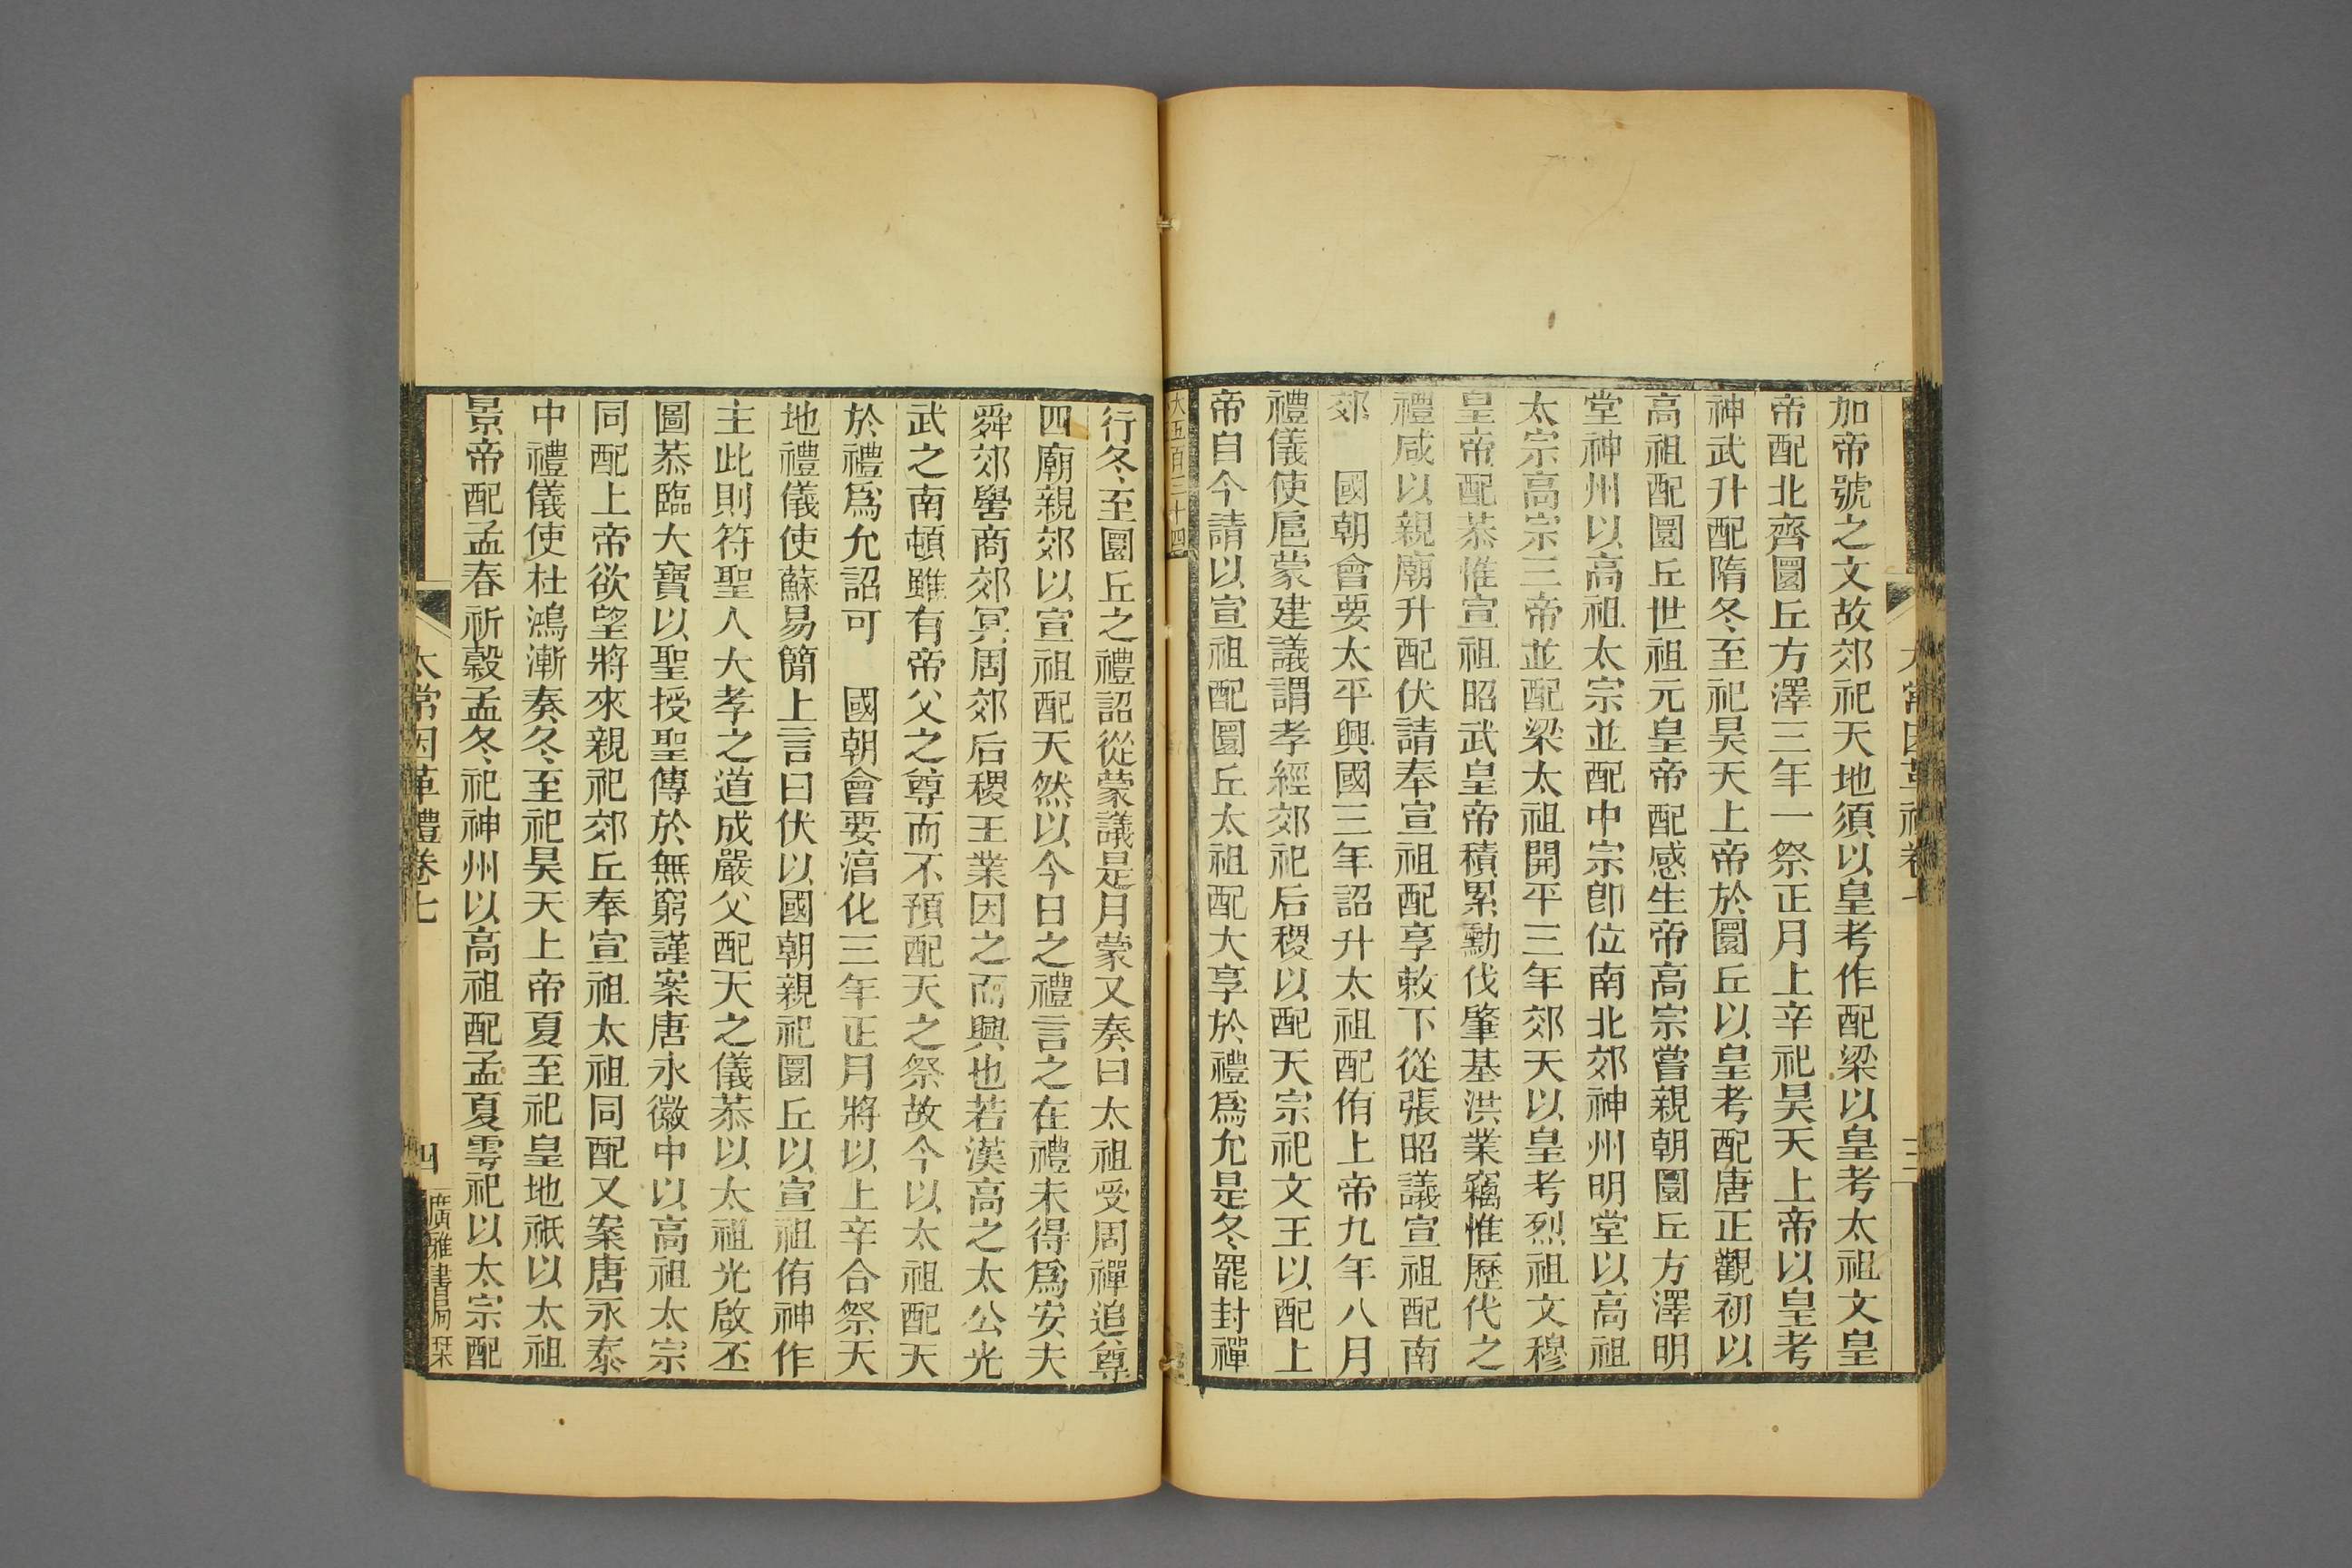 加帝號之文故郊祀天地須以皇考作配梁以皇考太祖文皇
帝配北齊圜丘方澤三年一祭正月上辛祀昊天上帝以皇考
神武升配隋冬至祀昊天上帝於圜丘以皇考配唐正觀初以
高祖配圜丘世祖元皇帝配感生帝高宗嘗親朝圜丘方澤明
堂神州以高祖太宗並配中宗卽位南北郊神州明堂以高祖
太宗高宗三帝並配梁太祖開平三年郊天以皇考烈祖文穆
皇帝配恭惟宣祖昭武皇帝積累勳伐肇基洪業竊惟歷代之
禮咸以親廟升配伏請奉宣祖配享敕下從張昭議宣祖配南
郊　國朝會要太平興國三年詔升太祖配侑上帝九年八月
禮儀使扈蒙建議謂孝經郊祀后稷以配天宗祀文王以配上
帝自今請以宣祖配圜丘太祖配大享於禮爲允是冬罷封禪
大五百二十四
行冬至圜丘之禮詔從蒙議是月蒙又奏曰太祖受周禪追尊
四廟親郊以宣祖配天然以今日之禮言之在禮未得爲安夫
舜郊嚳商郊冥周郊后稷王業因之而興也若漢高之太公光
武之南頓雖有帝父之尊而不預配天之祭故今以太祖配天
於禮爲允詔可　國朝會要淳化三年正月將以上辛合祭天
地禮儀使蘇易簡上言曰伏以國朝親祀圜丘以宣祖侑神作
主此則符聖人大孝之道成嚴父配天之儀恭以太祖光啟丕
圖恭臨大寶以聖授聖傳於無窮謹案唐永徽中以高祖太宗
同配上帝欲望將來親祀郊丘奉宣祖太祖同配又案唐永泰
中禮儀使杜鴻漸奏冬至祀昊天上帝夏至祀皇地祇以太祖
景帝配孟春祈穀孟冬祀神州以高祖配孟夏雩祀以太宗配
太常因革禮卷七
四
廣雅書局栞